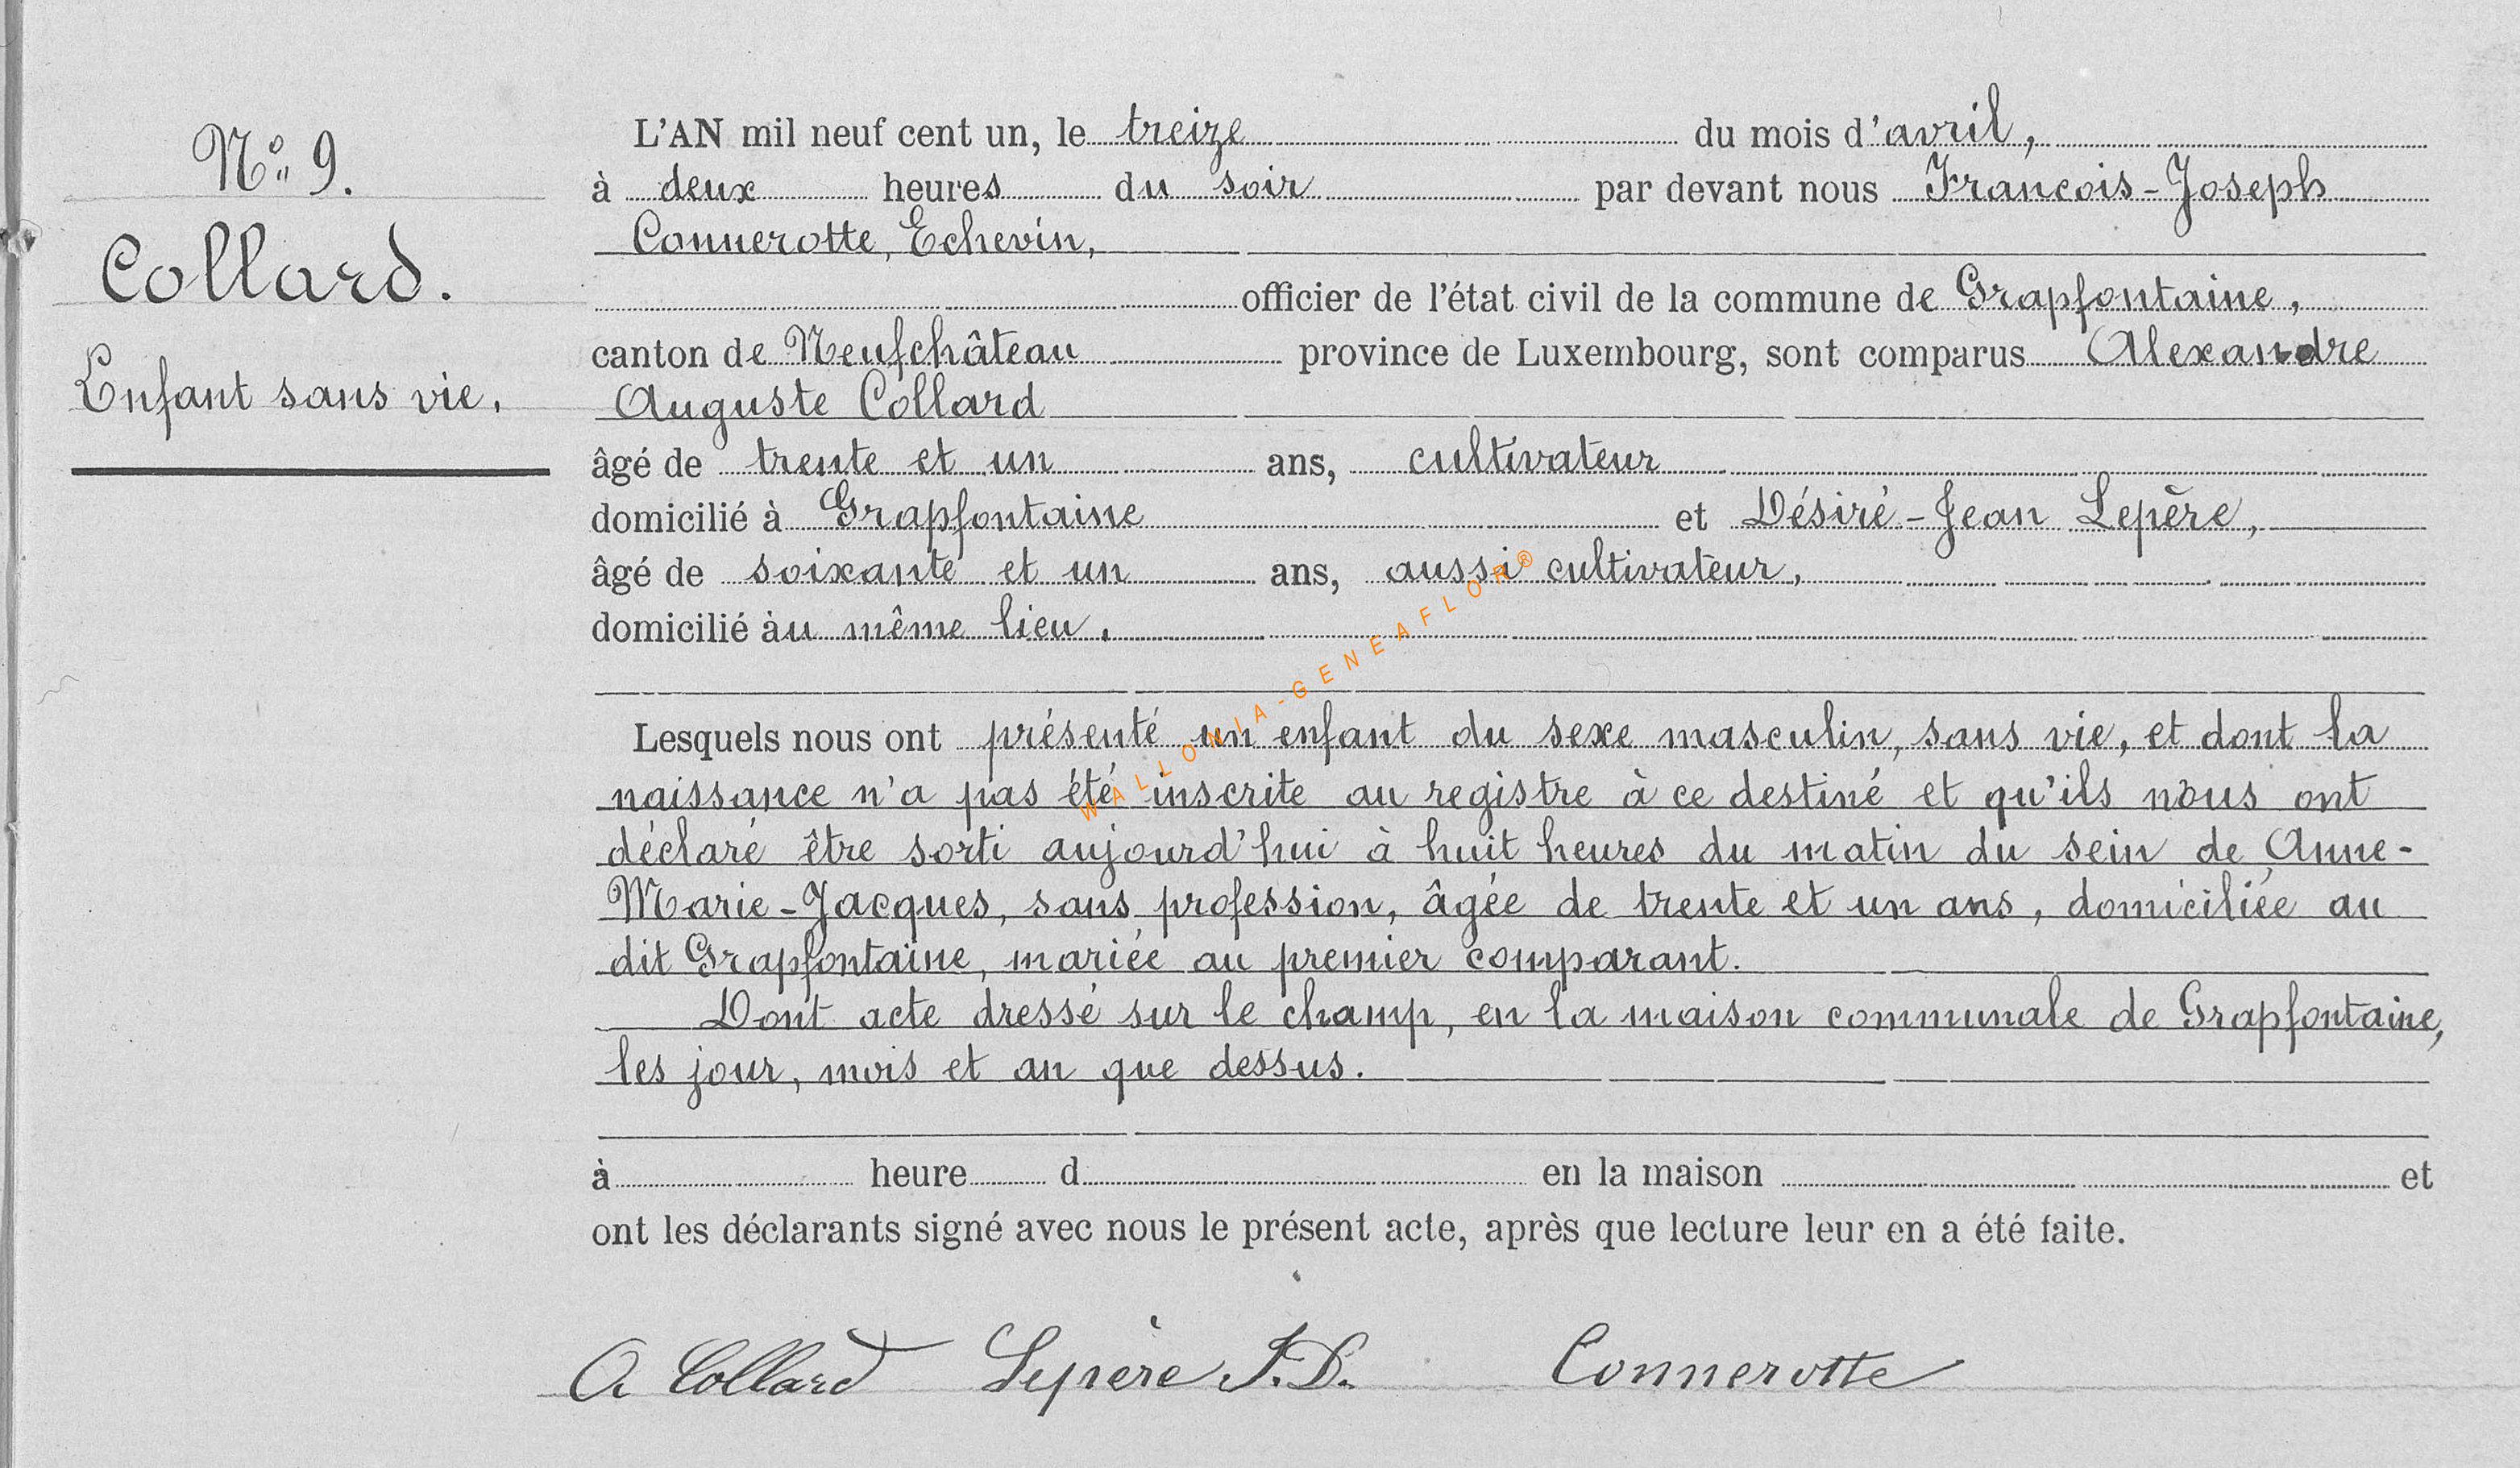 N° 9.
Collard.
Enfant sans vie.
L'AN mil neuf cent un, le treize du mois d'avril,
à deux heures du soir par devant nous Francois-Joseph
Connerotte, Echevin,
officier de l'état civil de la commune de Grapfontaine,
canton de Neufchâteau province de Luxembourg, sont comparus Alexandre
Auguste Collard
âgé de trente et un ans, cultivateur
domicilié à Grapfontaine et Désiré-Jean Lepère,
âgé de soixante et un ans, aussi cultivateur,
domicilié àu même lieu.
Lesquels nous ont présenté un enfant du sexe masculin, sans vie, et dont la
naissance n'a pas été inscrite au registre à ce destiné et qu'ils nous ont
déclaré être sorti aujourd'hui à huit heures du matin du sein de Anne-
Marie-Jacques, sans profession, âgée de trente et un ans, domiciliée au
dit Grapfontaine, mariée au premier comparant.
Dont acte dressé sur le champ, en la maison communale de Grapfontaine,
les jour, mois et an que dessus.
à heure d en la maison et
ont les déclarants signé avec nous le présent acte, après que lecture leur en a été faite.
A Collard Lepère J.D. Connerotte
WALLONIA-GENEAFLOR®